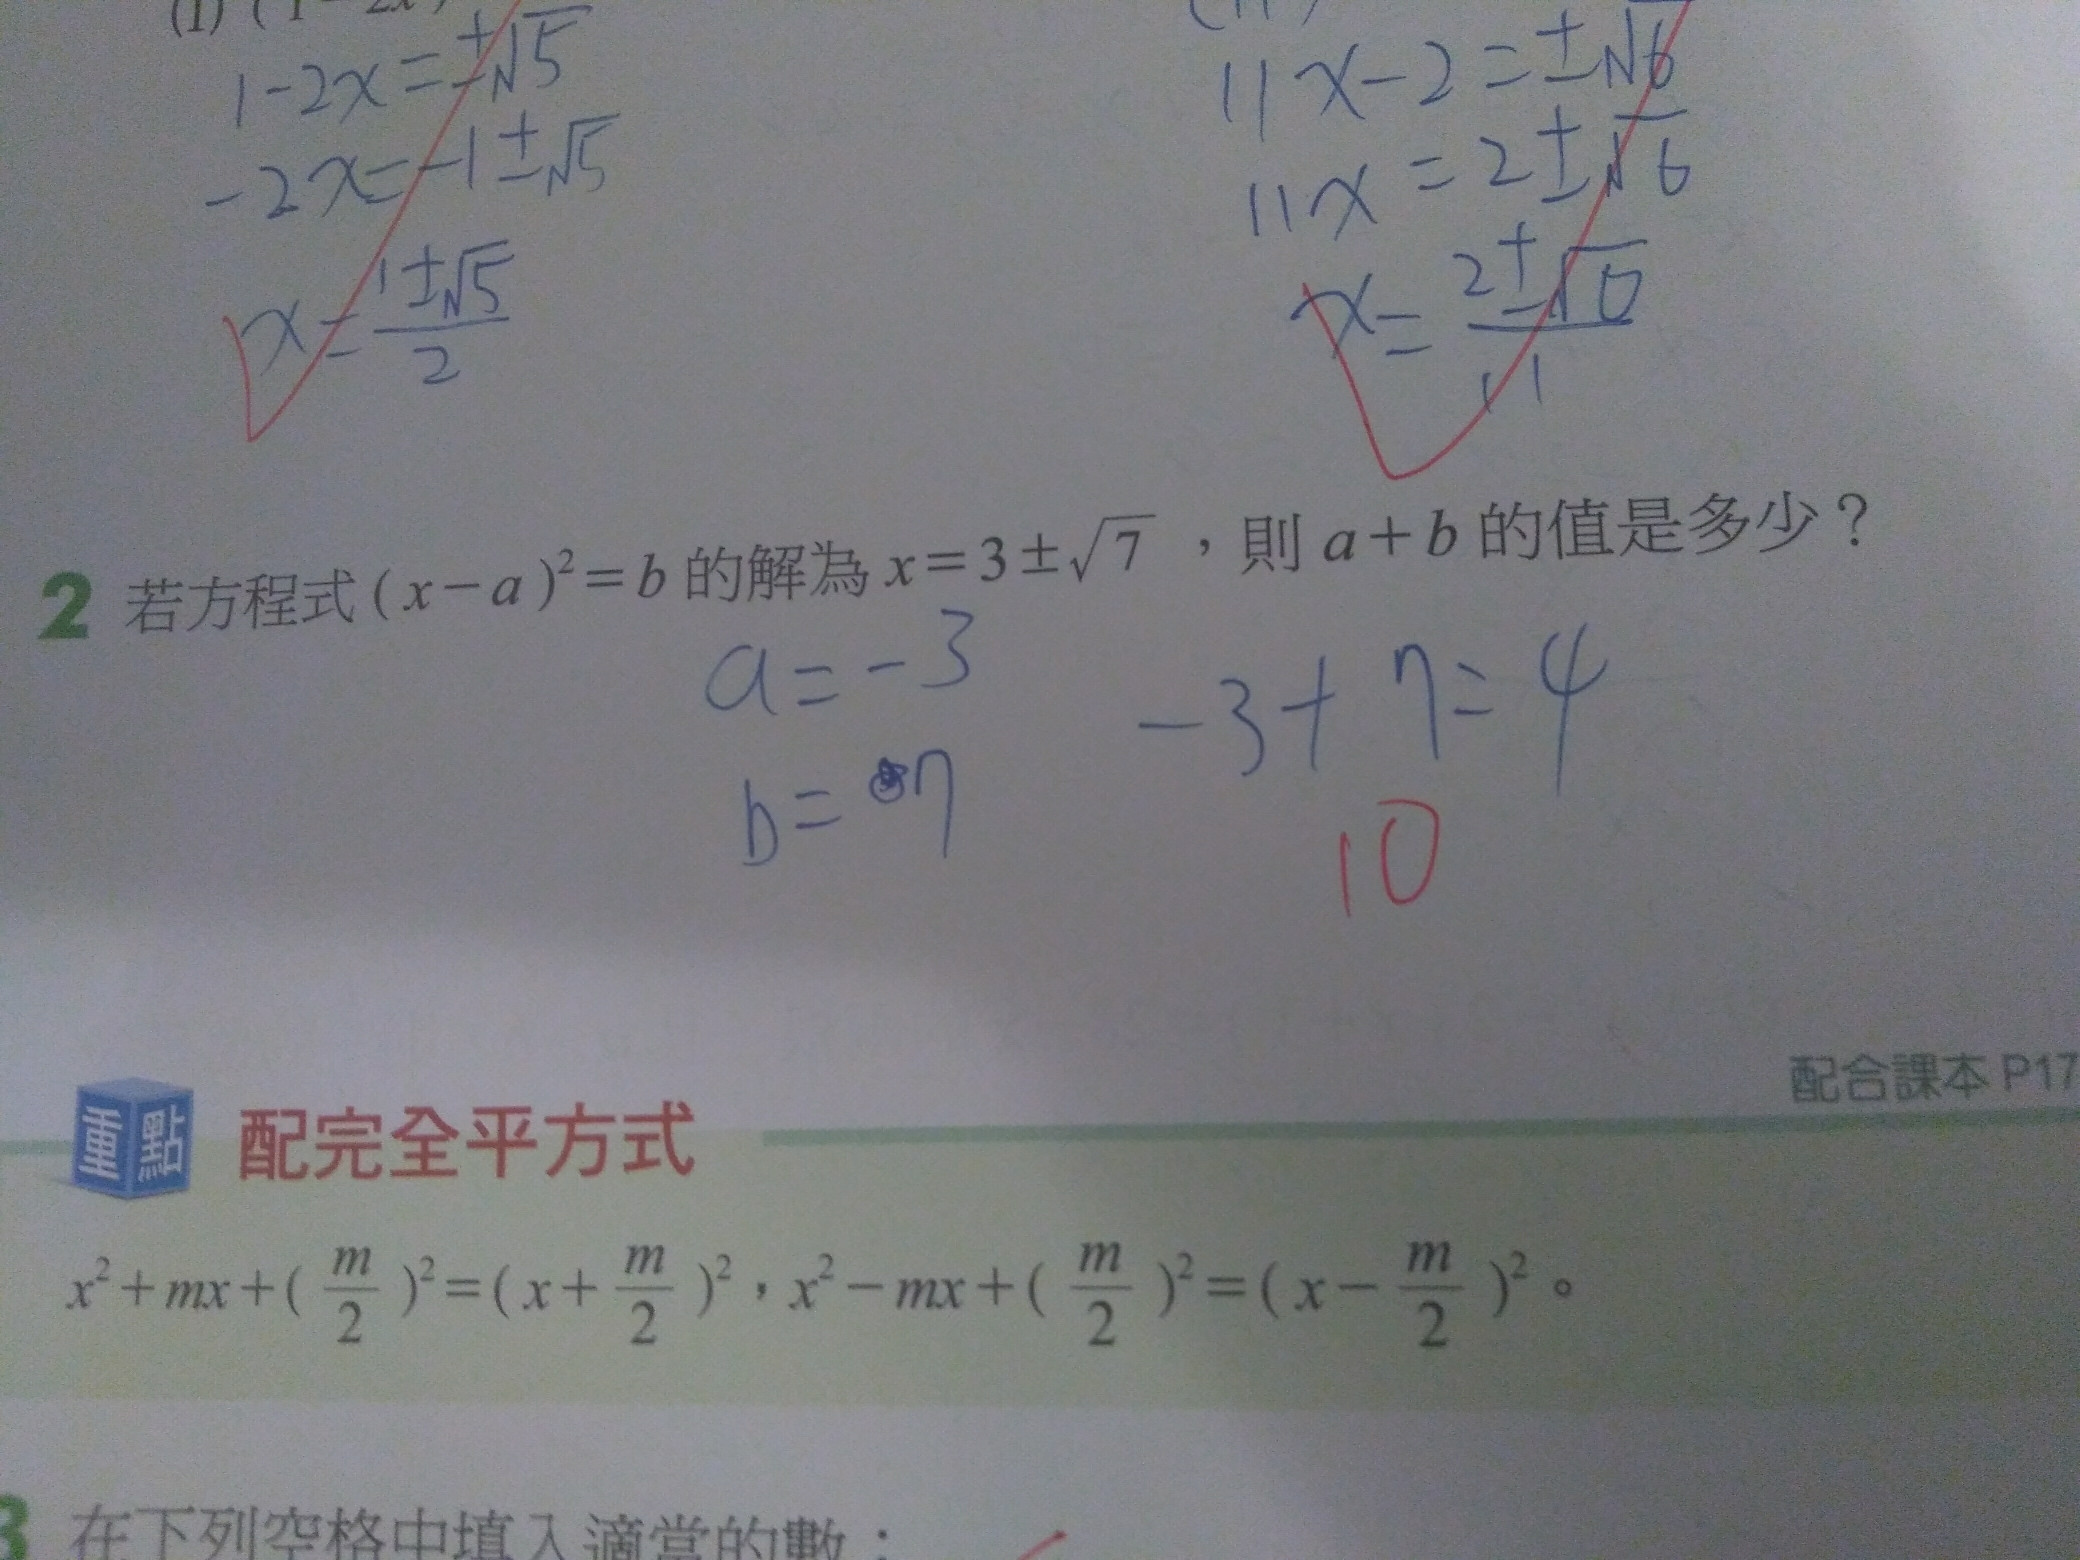 (1) (1-2x)
1-2x=±√5
-2x=-1±√5
x=(1±√5)/2
11x-2=±√6
11x=2±√6
x=(2±√6)/11
2 若方程式(x-a)²=b 的解為x=3±√7，則a+b的值是多少？
a=-3
b=7
-3+7=4
10
配合課本 P17
重點 配完全平方式
x²+mx+(m/2)²=(x+m/2)²，x²-mx+(m/2)²=(x-m/2)²。
3 在下列空格中填入適當的數：